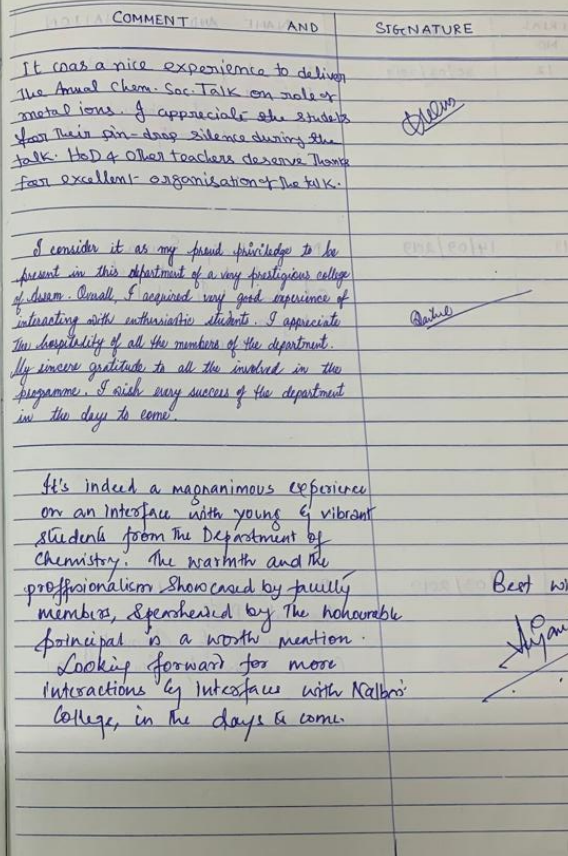 COMMENT AND SIGNATURE
It was a nice experience to deliver
the Annual Chem. Soc. Talk on role of
metal ions. I appreciate the students
for their pin-drop silence during the
talk. HoD & other teachers deserve thanks
for excellent organisation of the talk.
I consider it as my proud priviledge to be
present in this department of a very prestigious college
of Assam. Overall, I acquired very good experience of
interacting with enthusiastic students. I appreciate
the hospitality of all the members of the department.
My sincere gratitude to all the involved in the
programme. I wish every success of the department
in the days to come.
It's indeed a magnanimous experience
on an Interface with young & vibrant
students from The Department of
Chemistry. The warmth and the
proffsionalism showcased by faculty
Best
members, Spearheaded by The honourable
principal is a worth mention.
Looking forward for more
interactions & Interfaces with
College, in the days to come.